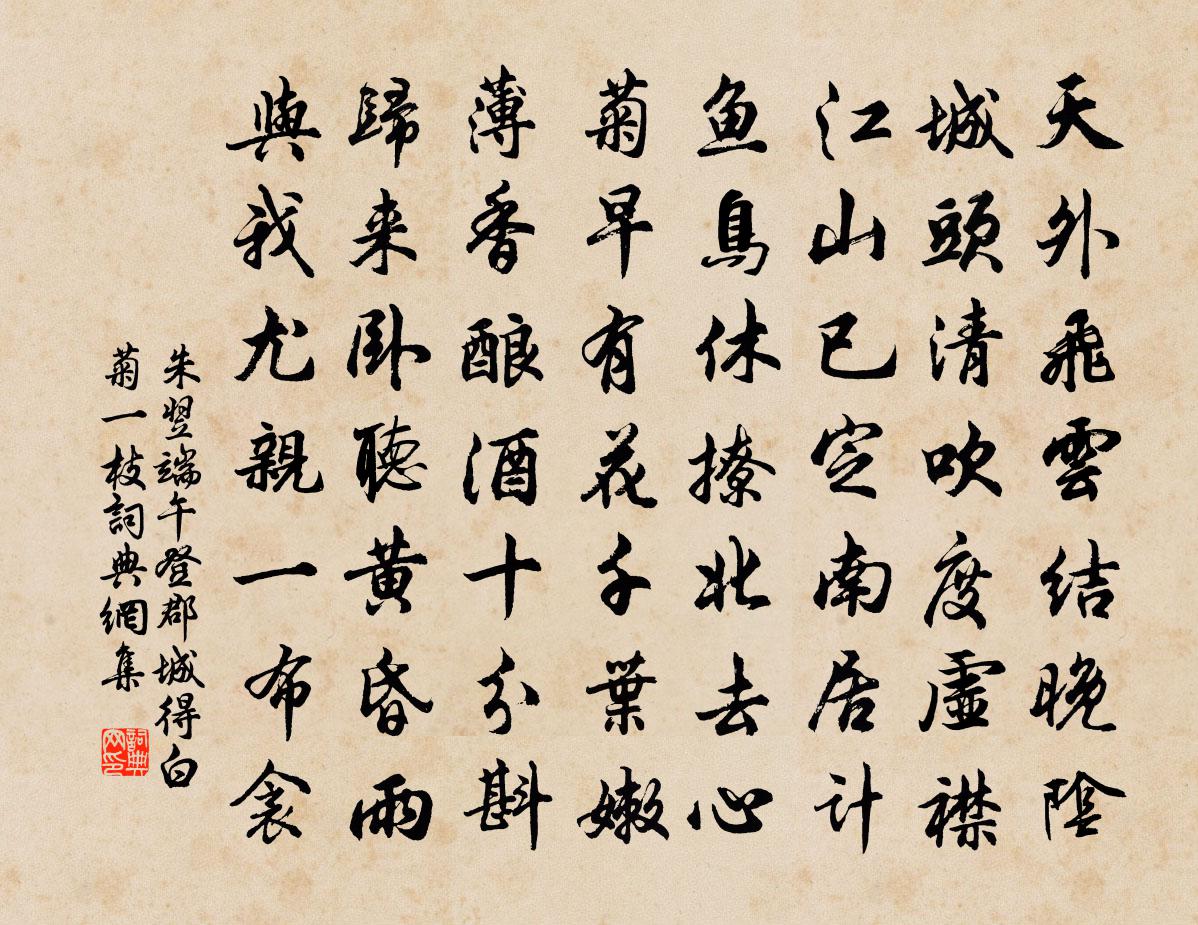 天外飛雲結晚陰
城頭清吹度虛襟
江山已定南居計
魚鳥休撩北去心
菊早有花千葉嫩
薄香釀酒十分斟
歸来卧聽黄昏雨
與我尤親一布衾
朱翌端午登郡城得白
菊一枝詞典網集
詞典
网印